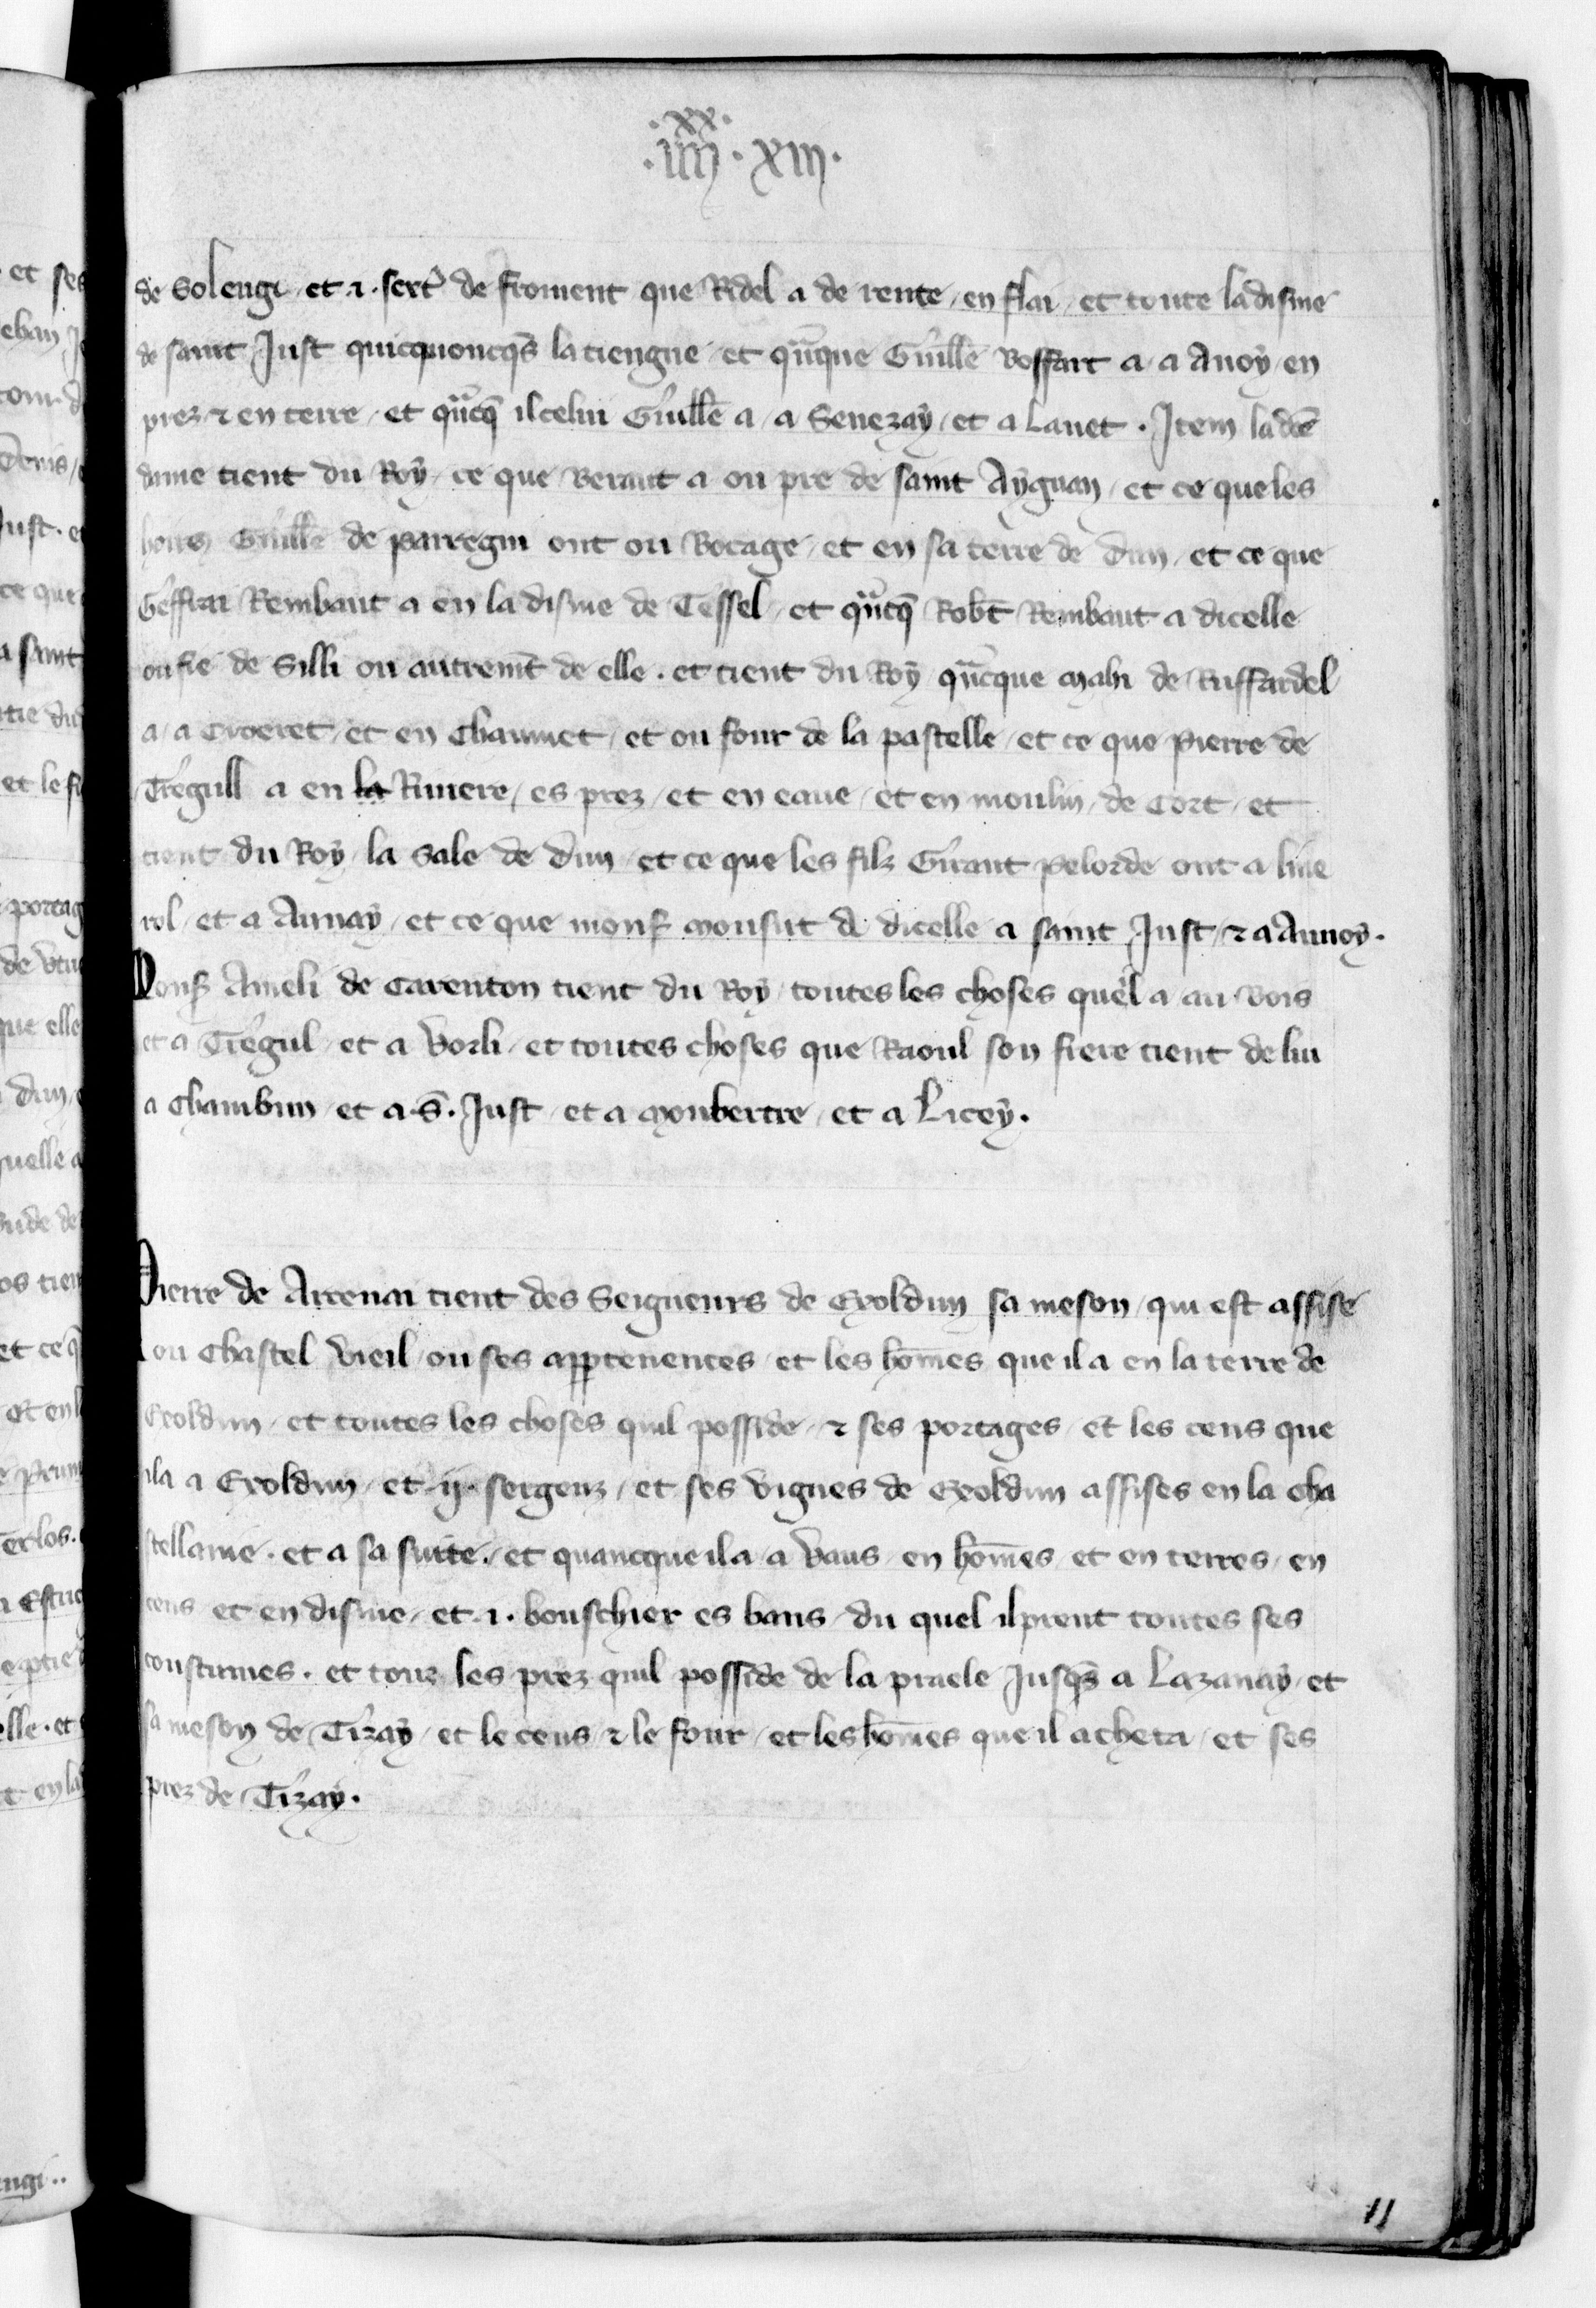 .iiii^xx. xiii.
de Solengi / et .i. sext' de froment que Ridel a de rente / en flai / et toute la disme
de saint Just quicquoncq̄s la tiengne / et q̄nque Guill̄e Boffart a / a Anoy / en
prez ⁊ en terre / et q̄ncq̄ il celui Guill̄e a / a Senezay / et a Lanet . Item la dc̄e
dame tient du Roy / ce que Beraut a ou pre de saint Ayguan / et ce que les
hoirs Guill̄e de Parregni ont ou Bocage / et en sa terre de Dun / et ce que
Geffrai Rembaut a en la disme de Cessel / et q̄ncq̄ Rob̄t Rembaut a dicelle
ou fie de Silli ou autrem̄t de elle . et tient du Roy q̄ncque Mahi de Ruffardel
a / a Croeret / et en Chaumet / et ou four de la pastelle / et ce que Pierre de
Tregull a en la Riviere / es prez / et en eaue / et en moulin / de Cort / et
tient du Roy / la Sale de Dun / et ce que les filz Girant Pelorde ont a Line
rol / et a Aunay / et ce que mons̄ Monsut A dicelle a saint Just / ⁊ a Annoy .
Mons̄ Ameli de Carenton tient du Roy / toutes les choses quel a / au Bois
et a Tregul / et a Vorli / et toutes choses que Raoul son frere tient de lui
a Chambun / et a .S. Just / et a Monbertre / et a Licey .
Pierre de Arcenai tient des Seigneurs de Exoldun sa meson / qui est assise
ou Chastel vieil / ou ses appartenences / et les hōmes que il a en la terre de
Exoldun / et toutes les choses quil posside / ⁊ ses portages / et les cens que
il a a Exoldun / et .ij. sergenz / et ses vignes de Exoldun assises en la cha
stellanie . et a sa suite . et quancque il a / a Vaus / en hōmes / et en terres / en
cens et en disme / et .i. bouschier es bans / du quel il prent toutes ses
coustumes . et touz les prez quil posside de la praele Jusq̄s a Lazanay / et
sa meson de Tizay / et le cens / ⁊ le four / et les hōmes que il acheta / et ses
prez de Tizay .
11